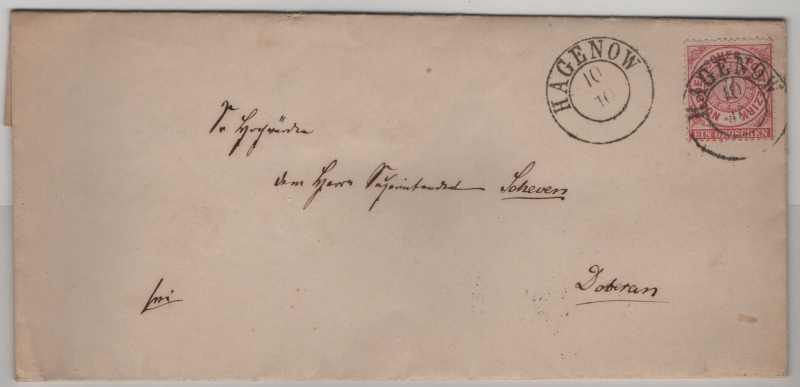 HAGENOW
10
10
HAGENOW
10
EIN GROSCHEN
Sr Hochwürden
dem Herrn Superintendent Scheven
Doberan
frei